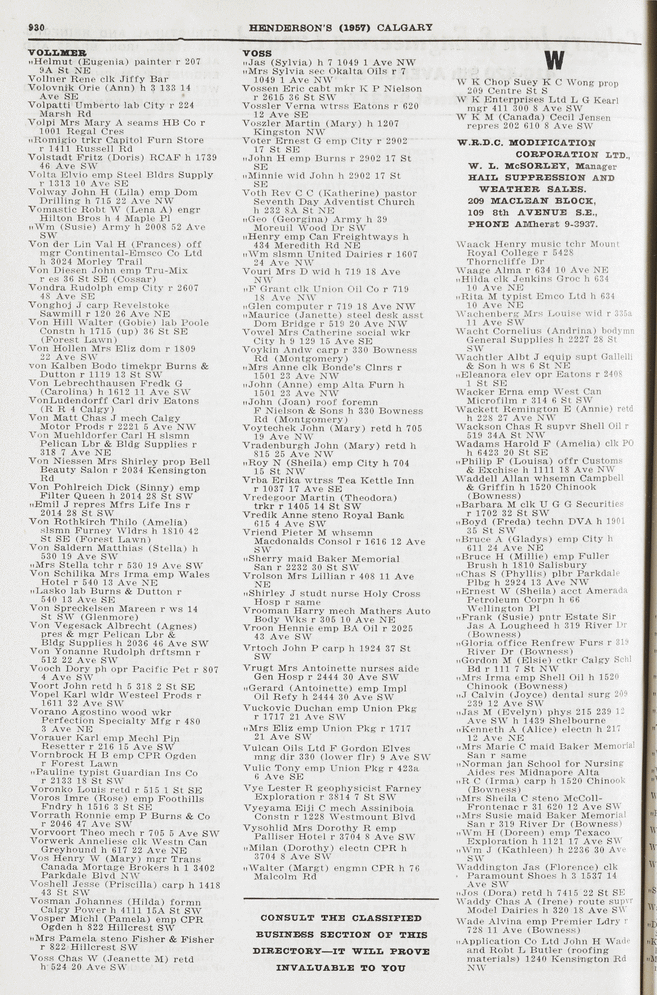 930
HENDERSON'S (1957) CALGARY
VOLLMER
"Helmut (Eugenia) painter r 207
9A St NE
Vollner Rene clk Jiffy Bar
Volovnik Orie (Ann) h 3 133 14
Ave SE
Volpatti Umberto lab City r 224
Marsh Rd
Volpi Mrs Mary A seams HB Co r
1001 Regal Cres
"Romigio trkr Capitol Furn Store
r 1411 Russell Rd
Volstadt Fritz (Doris) RCAF h 1739
46 Ave SW
Volta Elvio emp Steel Bldrs Supply
r 1313 10 Ave SE
Volway John H (Lila) emp Dom
Drilling h 715 22 Ave NW
Vomastic Robt W (Lena A) engr
Hilton Bros h 4 Maple Pl
"Wm (Susie) Army h 2008 52 Ave
SW
Von der Lin Val H (Frances) off
mgr Continental-Emsco Co Ltd
h 3024 Morley Trail
Von Diesen John emp Tru-Mix
r es 36 St SE (Cossar)
Vondra Rudolph emp City r 2607
48 Ave SE
Vonghoj J carp Revelstoke
Sawmill r 120 26 Ave NE
Von Hill Walter (Gobie) lab Poole
Constn h 1715 (up) 36 St SE
(Forest Lawn)
Von Hollen Mrs Eliz dom r 1809
22 Ave SW
von Kalben Bodo timekpr Burns &
Dutton r 1119 13 St SW
Von Lebrechthausen Fredk G
(Carolina) h 1612 11 Ave SW
VonLudendorff Carl driv Eatons
(R R 4 Calgy)
Von Matt Chas J mech Calgy
Motor Prods r 2221 5 Ave NW
Von Muehldorfer Carl H slsmn
Pelican Lbr & Bldg Supplies r
318 7 Ave NE
Von Niessen Mrs Shirley prop Bell
Beauty Salon r 2034 Kensington
Rd
Von Pohlreich Dick (Sinny) emp
Filter Queen h 2014 28 St SW
"Emil J repres Mfrs Life Ins r
2014 28 St SW
Von Rothkirch Thilo (Amelia)
slsmn Furney Wldrs h 1810 42
St SE (Forest Lawn)
Von Saldern Matthias (Stella) h
530 19 Ave SW
"Mrs Stella tchr r 530 19 Ave SW
Von Schilika Mrs Irma emp Wales
Hotel r 540 13 Ave NE
"Lasko lab Burns & Dutton r
540 13 Ave SE
Von Spreckelsen Mareen r ws 14
St SW (Glenmore)
Von Vegesack Albrecht (Agnes)
pres & mgr Pelican Lbr &
Bldg Supplies h 2036 46 Ave SW
Von Yonanne Rudolph drftsmn r
512 22 Ave SW
Vooch Dory ph opr Pacific Pet r 807
4 Ave SW
Voort John retd h 5 318 2 St SE
Vopel Karl wldr Westeel Prods r
1611 32 Ave SW
Vorano Agostino wood wkr
Perfection Specialty Mfg r 480
3 Ave NE
Vorauer Karl emp Mechl Pin
Resetter r 216 15 Ave SW
Vornbrock H B emp CPR Ogden
r Forest Lawn
"Pauline typist Guardian Ins Co
r 2133 18 St SW
Voronko Louis retd r 515 1 St SE
Voros Imre (Rose) emp Foothills
Fndry h 1516 3 St SE
Vorrath Ronnie emp P Burns & Co
r 2046 47 Ave SW
Vorvoort Theo mech r 705 5 Ave SW
Vorwerk Anneliese clk Westn Can
Greyhound h 617 22 Ave NE
Vos Henry W (Mary) mgr Trans
Canada Mortage Brokers h 1 3402
Parkdale Blvd NW
Voshell Jesse (Priscilla) carp h 1418
43 St SW
Vosman Johannes (Hilda) formn
Calgy Power h 4111 15A St SW
Vosper Michl (Pamela) emp CPR
Ogden h 822 Hillcrest SW
"Mrs Pamela steno Fisher & Fisher
r 822 Hillcrest SW
Voss Chas W (Jeanette M) retd
h 524 20 Ave SW
VOSS
"Jas (Sylvia) h 7 1049 1 Ave NW
"Mrs Sylvia sec Okalta Oils r 7
1049 1 Ave NW
Vossen Eric cabt mkr K P Nielson
r 2615 36 St SW
Vossler Verna wtrss Eatons r 620
12 Ave SE
Voszler Martin (Mary) h 1207
Kingston NW
Voter Ernest G emp City r 2902
17 St SE
"John H emp Burns r 2902 17 St
SE
"Minnie wid John h 2902 17 St
SE
Voth Rev C C (Katherine) pastor
Seventh Day Adventist Church
h 232 8A St NE
"Geo (Georgina) Army h 39
Moreuil Wood Dr SW
"Henry emp Can Freightways h
434 Meredith Rd NE
"Wm slsmn United Dairies r 1607
24 Ave NW
Vouri Mrs D wid h 719 18 Ave
NW
"F Grant clk Union Oil Co r 719
18 Ave NW
"Glen computer r 719 18 Ave NW
"Maurice (Janette) steel desk asst
Dom Bridge r 519 20 Ave NW
Vowel Mrs Catherine social wkr
City h 9 129 15 Ave SE
Voykin Andw carp r 330 Bowness
Rd (Montgomery)
"Mrs Anne clk Bonde's Clnrs r
1501 23 Ave NW
"John (Anne) emp Alta Furn h
1501 23 Ave NW
"John (Joan) roof foremn
F Nielson & Sons h 330 Bowness
Rd (Montgomery)
Voytechek John (Mary) retd h 705
19 Ave NW
Vradenburgh John (Mary) retd h
815 25 Ave NW
"Roy N (Sheila) emp City h 704
15 St NW
Vrba Erika wtrss Tea Kettle Inn
r 1037 17 Ave SE
Vredegoor Martin (Theodora)
trkr r 1405 14 St SW
Vredik Anne steno Royal Bank
615 4 Ave SW
Vriend Pieter M whsemn
Macdonalds Consol r 1616 12 Ave
SW
"Sherry maid Baker Memorial
San r 2232 30 St SW
Vrolson Mrs Lillian r 408 11 Ave
NE
"Shirley J studt nurse Holy Cross
Hosp r same
Vrooman Harry mech Mathers Auto
Body Wks r 305 10 Ave NE
Vroon Hennie emp BA Oil r 2025
43 Ave SW
Vrtoch John P carp h 1924 37 St
SW
Vrugt Mrs Antoinette nurses aide
Gen Hosp r 2444 30 Ave SW
"Gerard (Antoinette) emp Impl
Oil Refy h 2444 30 Ave SW
Vuckovic Duchan emp Union Pkg
r 1717 21 Ave SW
"Mrs Eliz emp Union Pkg r 1717
21 Ave SW
Vulcan Oils Ltd F Gordon Elves
mng dir 330 (lower flr) 9 Ave SW
Vulic Tony emp Union Pkg r 423a
6 Ave SE
Vye Lester R geophysicist Farney
Exploration r 3814 7 St SW
Vyeyama Eiji C mech Assiniboia
Constn r 1228 Westmount Blvd
Vysohlid Mrs Dorothy R emp
Palliser Hotel r 3704 8 Ave SW
"Milan (Dorothy) electn CPR h
3704 8 Ave SW
"Walter (Margt) engmn CPR h 76
Malcolm Rd
CONSULT THE CLASSIFIED
BUSINESS SECTION OF THIS
DIRECTORY—IT WILL PROVE
INVALUABLE TO YOU
W
W K Chop Suey K C Wong prop
209 Centre St S
W K Enterprises Ltd L G Kearl
mgr 411 300 8 Ave SW
W K M (Canada) Cecil Jensen
repres 202 610 8 Ave SW
W.R.D.C. MODIFICATION
CORPORATION LTD.,
W. L. McSORLEY, Manager
HAIL SUPPRESSION AND
WEATHER SALES.
209 MACLEAN BLOCK,
109 8th AVENUE S.E.,
PHONE AMherst 9-3937.
Waack Henry music tchr Mount
Royal College r 5428
Thorncliffe Dr
Waage Alma r 634 10 Ave NE
"Hilda clk Jenkins Groc h 634
10 Ave NE
"Rita M typist Emco Ltd h 634
10 Ave NE
Wachenberg Mrs Louise wid r 335a
11 Ave SW
Wacht Cornelius (Andrina) bodymn
General Supplies h 2227 28 St
SW
Wachtler Albt J equip supt Gallelli
& Son h ws 6 St NE
"Eleanora elev opr Eatons r 2408
1 St SE
Wacker Erna emp West Can
Microfilm r 314 6 St SW
Wackett Remington E (Annie) retd
h 228 27 Ave NW
Wackson Chas R supvr Shell Oil r
519 34A St NW
Wadams Harold F (Amelia) clk PO
h 6423 20 St SE
"Philip F (Louisa) offr Customs
& Exchise h 1111 18 Ave NW
Waddell Allan whsemn Campbell
& Griffin h 1520 Chinook
(Bowness)
"Barbara M clk U G G Securities
r 1702 32 St SW
"Boyd (Freda) techn DVA h 1901
35 St SW
"Bruce A (Gladys) emp City h
611 24 Ave NE
"Bruce H (Millie) emp Fuller
Brush h 1810 Salisbury
"Chas S (Phyllis) plbr Parkdale
Plbg h 2924 13 Ave NW
"Ernest W (Sheila) acct Amerada
Petroleum Corpn h 66
Wellington Pl
"Frank (Susie) pntr Estate Sir
Jas A Lougheed h 319 River Dr
(Bowness)
"Gloria office Renfrew Furs r 319
River Dr (Bowness)
"Gordon M (Elsie) ctkr Calgy Schl
Bd r 111 7 St NW
"Mrs Irma emp Shell Oil h 1520
Chinook (Bowness)
"J Calvin (Joyce) dental surg 209
239 12 Ave SW
"Jas M (Evelyn) phys 215 239 12
Ave SW h 1439 Shelbourne
"Kenneth A (Alice) electn h 217
12 Ave NE
"Mrs Marie C maid Baker Memorial
San r same
"Norman jan School for Nursing
Aides res Midnapore Alta
"R C (Irma) carp h 1520 Chinook
(Bowness)
"Mrs Sheila C steno McColl-
Frontenac r 31 620 12 Ave SW
"Mrs Susie maid Baker Memorial
San r 319 River Dr (Bowness)
"Wm H (Doreen) emp Texaco
Exploration h 1121 17 Ave SW
"Wm J (Kathleen) h 2236 30 Ave
SW
Waddington Jas (Florence) clk
Paramount Shoes h 3 1537 14
Ave SW
"Jos (Dora) retd h 7415 22 St SE
Waddy Chas A (Irene) route supvr
Model Dairies h 320 18 Ave SW
Wade Alvina emp Premier Ldry r
728 11 Ave (Bowness)
"Application Co Ltd John H Wade
and Robt L Butler (roofing
materials) 1240 Kensington Rd
NW